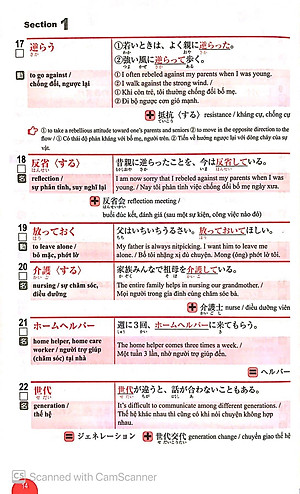 Section 1
17 逆らう
さか
①若いときは、よく親に逆らった。
②強い風に逆らって歩く。
to go against /
chống đối, ngược lại
① I often rebeled against my parents when I was young.
② I walk against the strong wind. /
① Khi còn trẻ, tôi thường chống đối bố mẹ.
② Đi bộ ngược cơn gió mạnh.
抵抗〈する〉resistance / kháng cự, chống cự
① to take a rebellious attitude toward one's parents and seniors ② to move in the opposite direction to the
flow / ① Có thái độ phản kháng với bố mẹ, người trên. ② Tiến về hướng ngược lại với dòng chảy của sự
vật.
18 反省〈する〉
はんせい
昔親に逆らったことを、今は反省している。
reflection /
sự phản tỉnh, suy nghĩ lại
I am now sorry that I rebeled against my parents when I was
young. / Nay tôi phản tỉnh việc chống đối bố mẹ ngày xưa.
反省会 reflection meeting /
はんせいかい
buổi đúc kết, đánh giá (sau một sự kiện, công việc nào đó)
19 放っておく
ほう
父はいちいちうるさい。放っておいてほしい。
to leave alone /
bỏ mặc, phớt lờ
My father is always nitpicking. I want him to leave me
alone. / Bố tôi nhặng xị đủ chuyện. Mong (ông) phớt lờ tôi.
20 介護〈する〉
かいご
家族みんなで祖母を介護している。
nursing / sự chăm sóc,
điều dưỡng
The entire family helps in nursing our grandmother. /
Mọi người trong gia đình cùng chăm sóc bà.
介護士 nurse / điều dưỡng viên
かいごし
21 ホームヘルパー
週に3回、ホームヘルパーに来てもらう。
home helper, home care
worker / người trợ giúp
(chăm sóc) tại nhà
The home helper comes three times a week. /
Một tuần 3 lần, nhờ người trợ giúp đến.
ヘルパー
22 世代
せだい
世代が違うと、話が合わないこともある。
generation /
thế hệ
It's difficult to communicate among different generations. /
Thế hệ khác nhau thì cũng có khi nói chuyện không hợp
nhau.
ジェネレーション 世代交代 generation change / chuyển giao thế hệ
せだいこうたい
14
CS Scanned with CamScanner